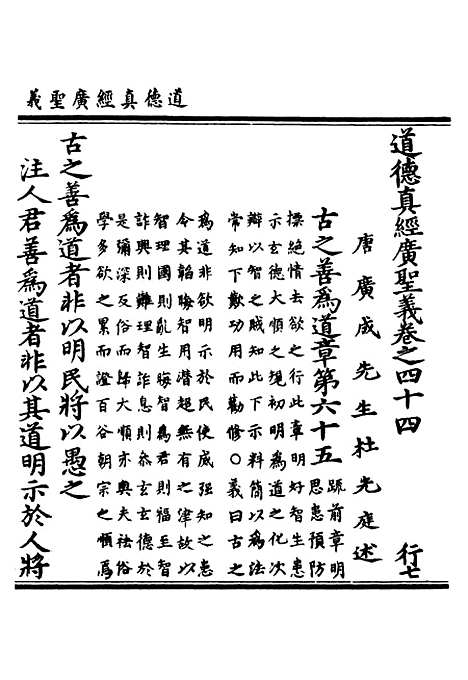 道德真經廣聖義
道德真經廣聖義卷之四十四 行七
唐廣成先生杜光庭述
古之善爲道章第六十五
疏前章明
思患預防
摽絕情去欲之行此章明好智生患
示玄德大順之規初明爲道之化次
辯以智之賊知此下示料簡以爲法
常知下歎功用而勸修○義曰古之
爲道非欲明示於民使威强知之患
令其韜晦智用潛超無有之津故以
智理國則亂生晦智爲君則福至智
詐興則難理智詐息則叅玄玄德於
是彌深反俗而歸大順亦輿夫祛俗
學多欲之累而證百谷朝宗之順爲
古之善爲道者非以明民將以愚之
注人君善爲道者非以其道明示於人將